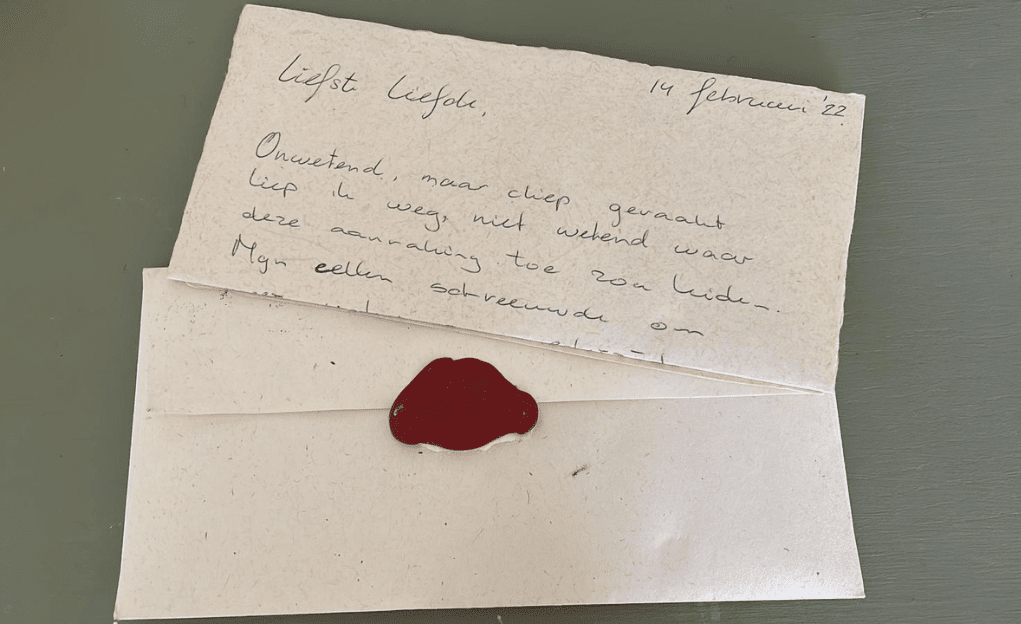 Liefste Liefde,
14 februari '22
Onwetend, maar diep geraakt
liep ik weg, niet wetend waar
deze aanraking toe zou leiden.
Mijn cellen schreeuwde om